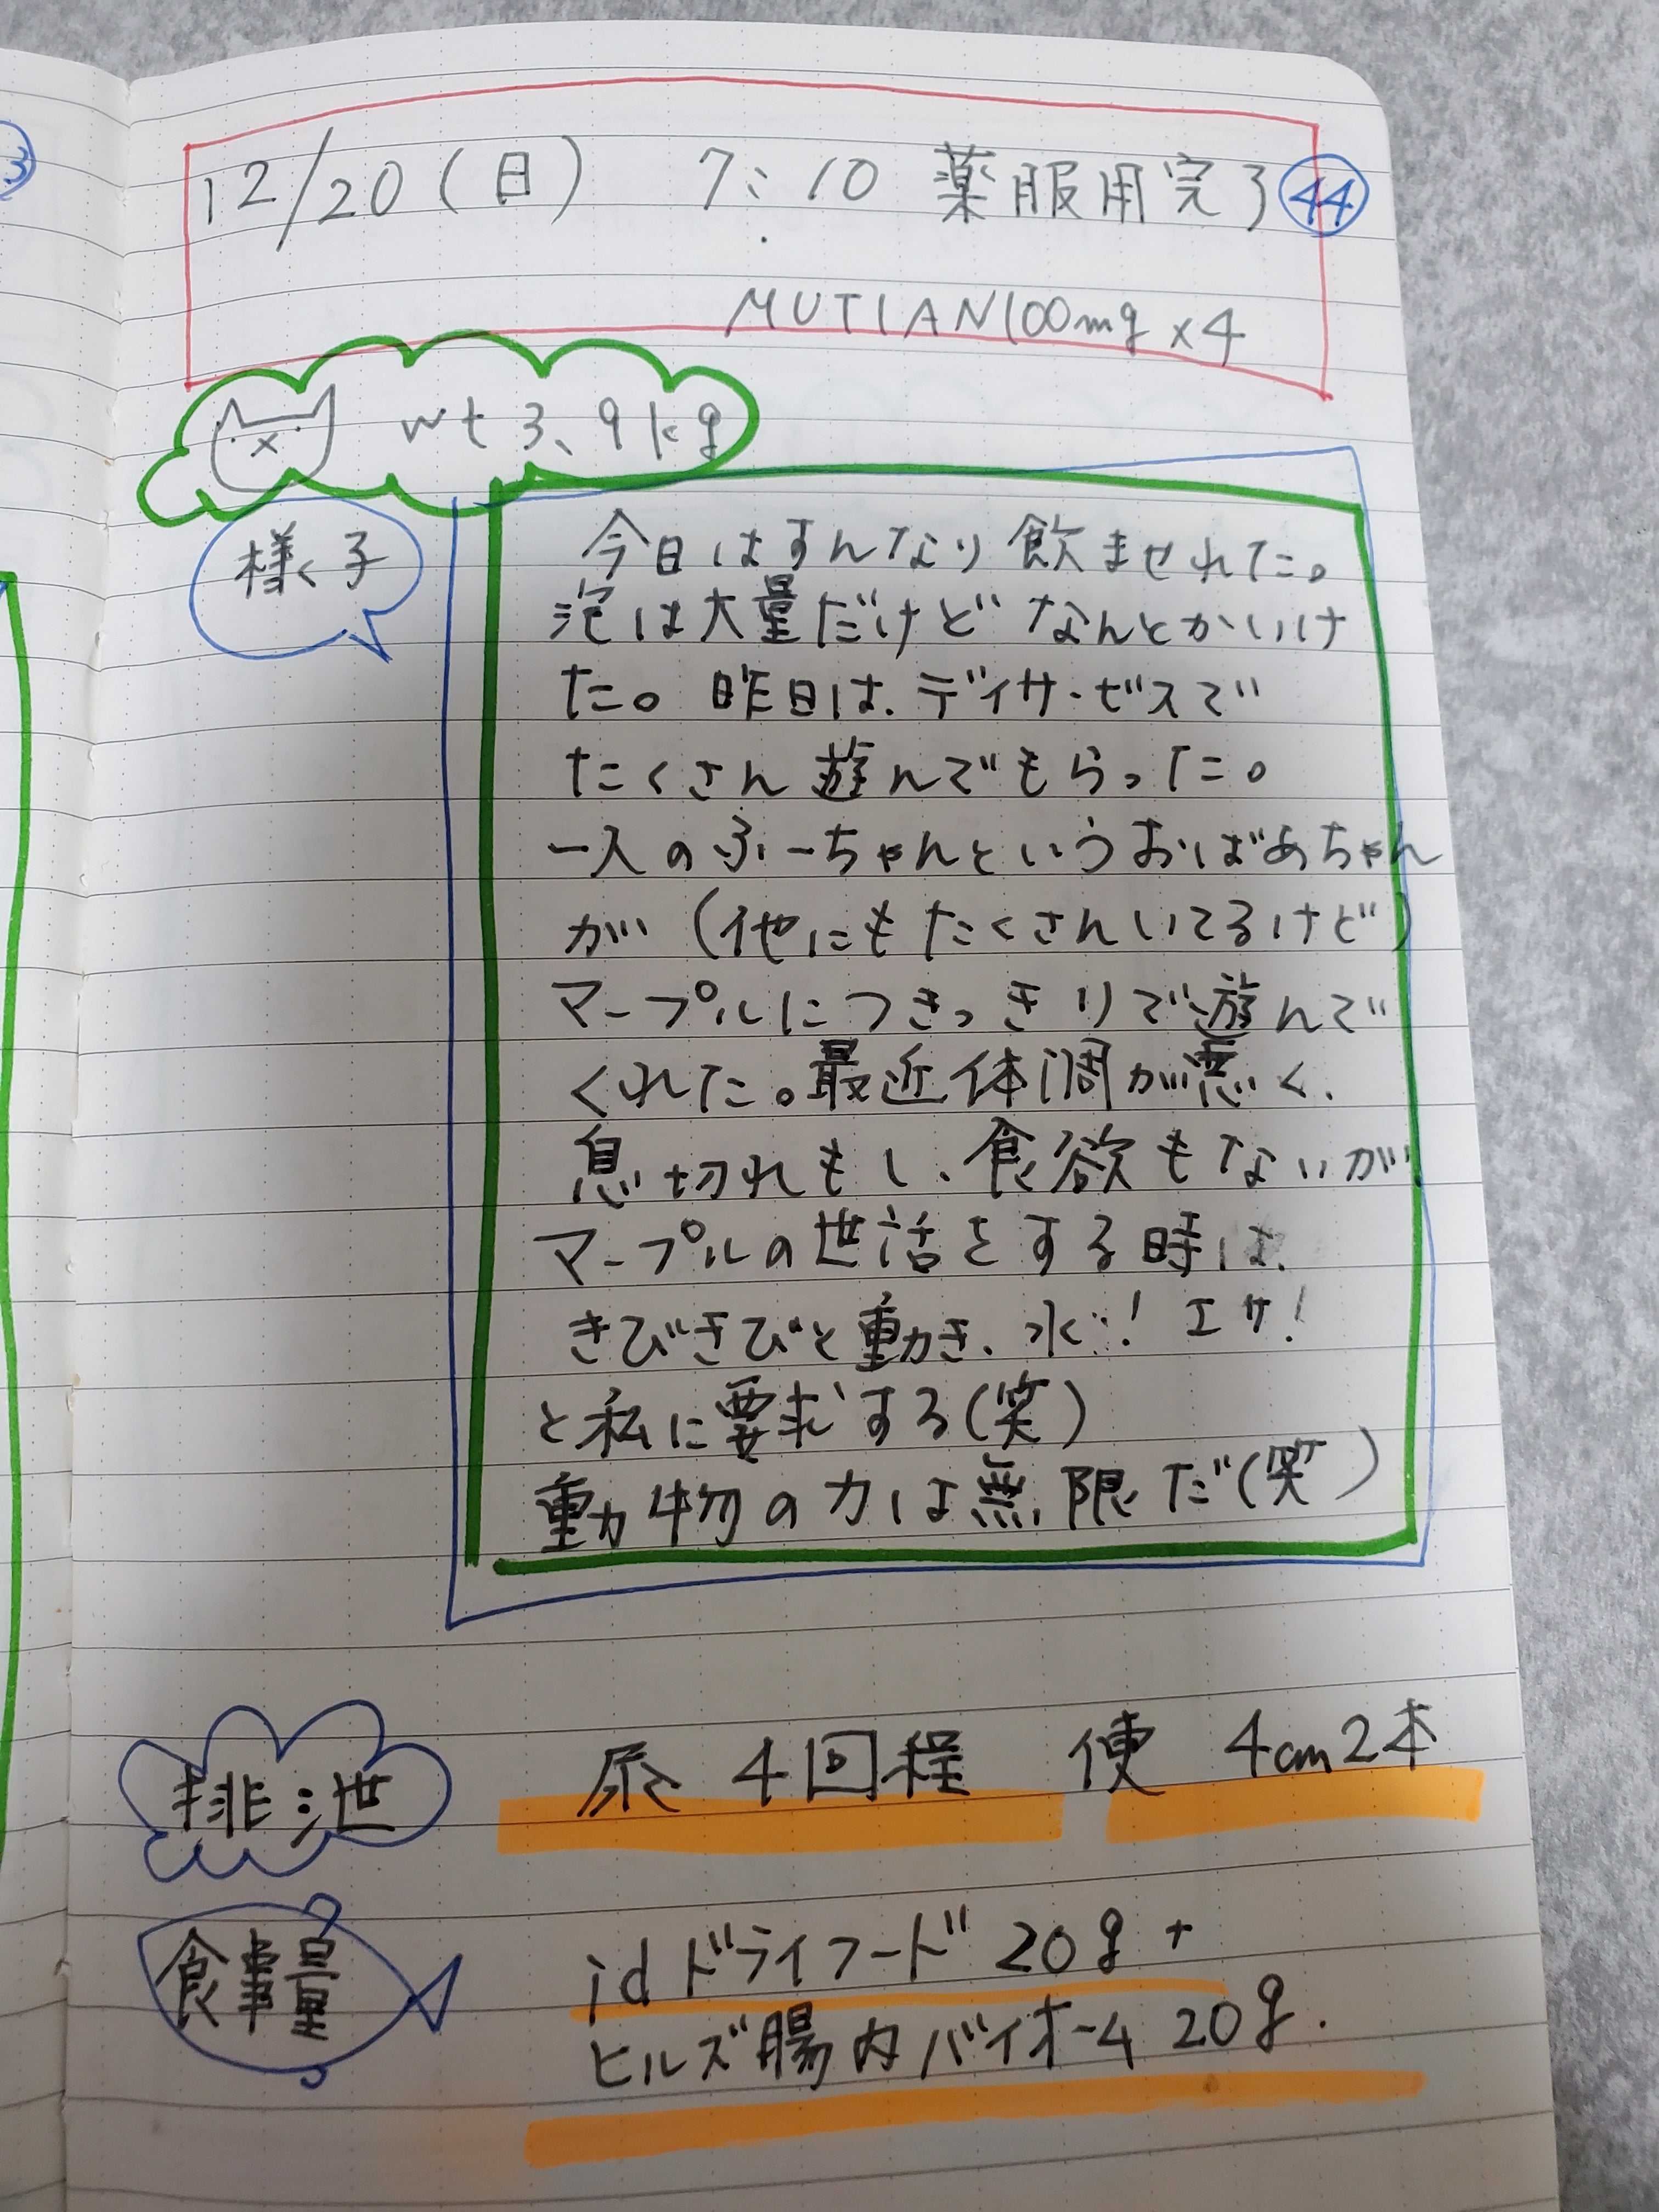 12/20(日) 7:10 薬服用完了 44
MUTIAN100mg x4
wt 3.9kg
様子
今日はすんなり飲ませれた。
泡は大量だけどなんとかいけ
た。昨日は、デイサービスで
たくさん遊んでもらった。
一人のふーちゃんというおばあちゃん
が(他にもたくさんいてるけど)
マープルにつきっきりで遊んで
くれた。最近体調が悪く、
息切れもし、食欲もないが
マープルの世話をする時は、
きびきびと動き、水!エサ!
と私に要求する(笑)
動物の力は無限だ(笑)
排泄
尿 4回程 便 4cm2本
食事量
idドライフード 20g +
ヒルズ腸内バイオーム 20g.